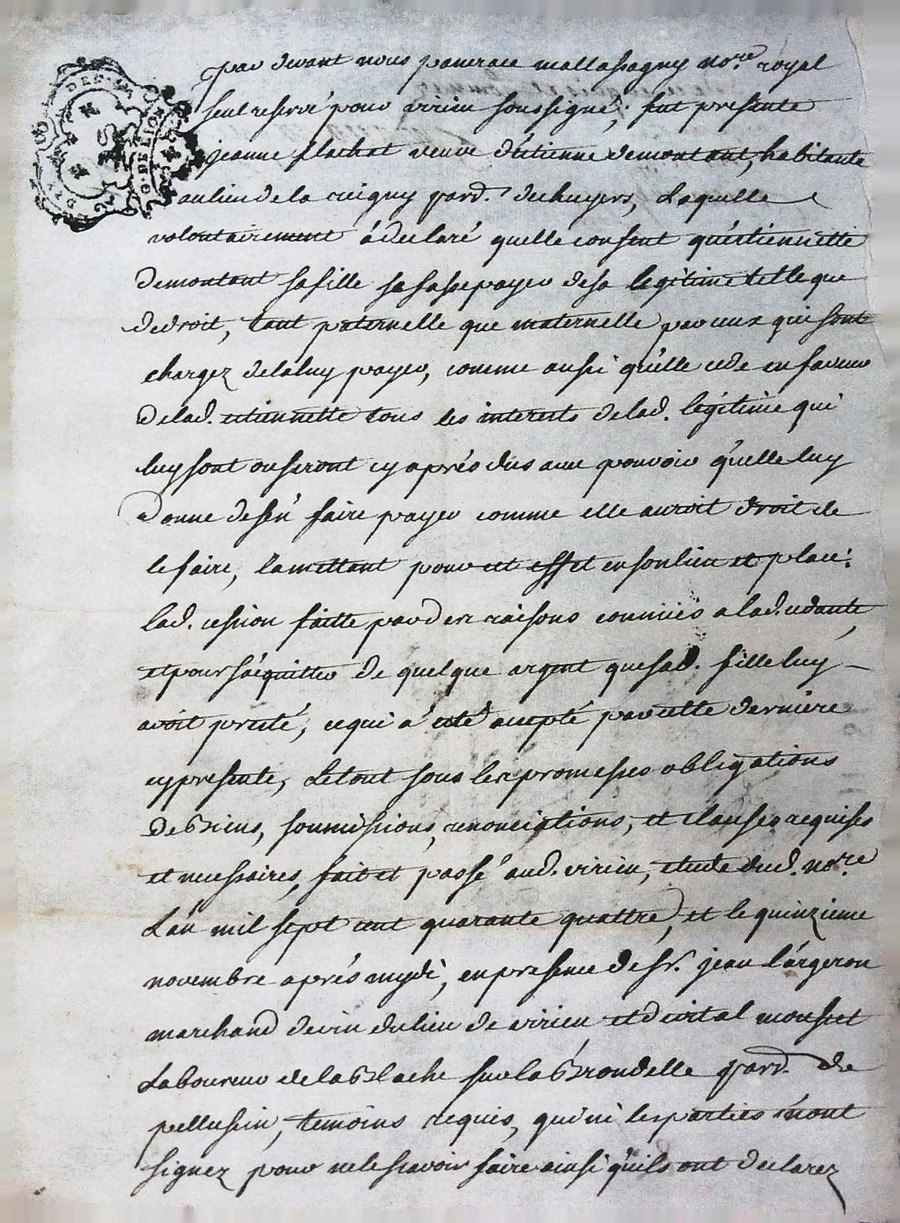 par devant nous pancrace mallassagny no.re royal
seul reservé pour virieu soussigné, fut presente
jeanne flachat veuve d'etienne demontant, habitante
au lieu de la cuigny pard. de chuyers, Laquelle
volontairement à declaré quelle consent qu'estiennette
demontant sa fille sa fasse payer de sa legitime telle que
de droit, tant paternelle que maternelle par ceux qui sont
chargez de la luy payer, comme aussi qu'elle cede en faveur
de lad. etiennette tous les interets de lad. legitime qui
luy sont ou seront cy après dus avec pouvoir qu'elle luy
donne de s'en faire payer comme elle auroit droit de
le faire, la mettant pour cet effet en son lieu et place.
lad. cession faitte par des raisons connües a lad. cedante,
et pour s'aquitter de quelque argent que sad. fille luy
avoit preté, ce qui à eté accepté par cette derniere
cy presente, Le tout sous les promesses obligations
de biens, soumissions, renonciations, et clauses requises
et necessaires, fait et passé aud. virieu, etude dud. no.re
L'an mil sept cent quarante quattre, et le quinzieme
novembre après mydi, en presence de sr. jean l'argeron
marchand de vin du lieu de virieu et de vital mousset
Laboureur de la blache sur la brondelle pard. de
pellussin, temoins requis, qui ni les parties n'ont
signez pour ne le savoir faire ainsi qu'ils ont declarez